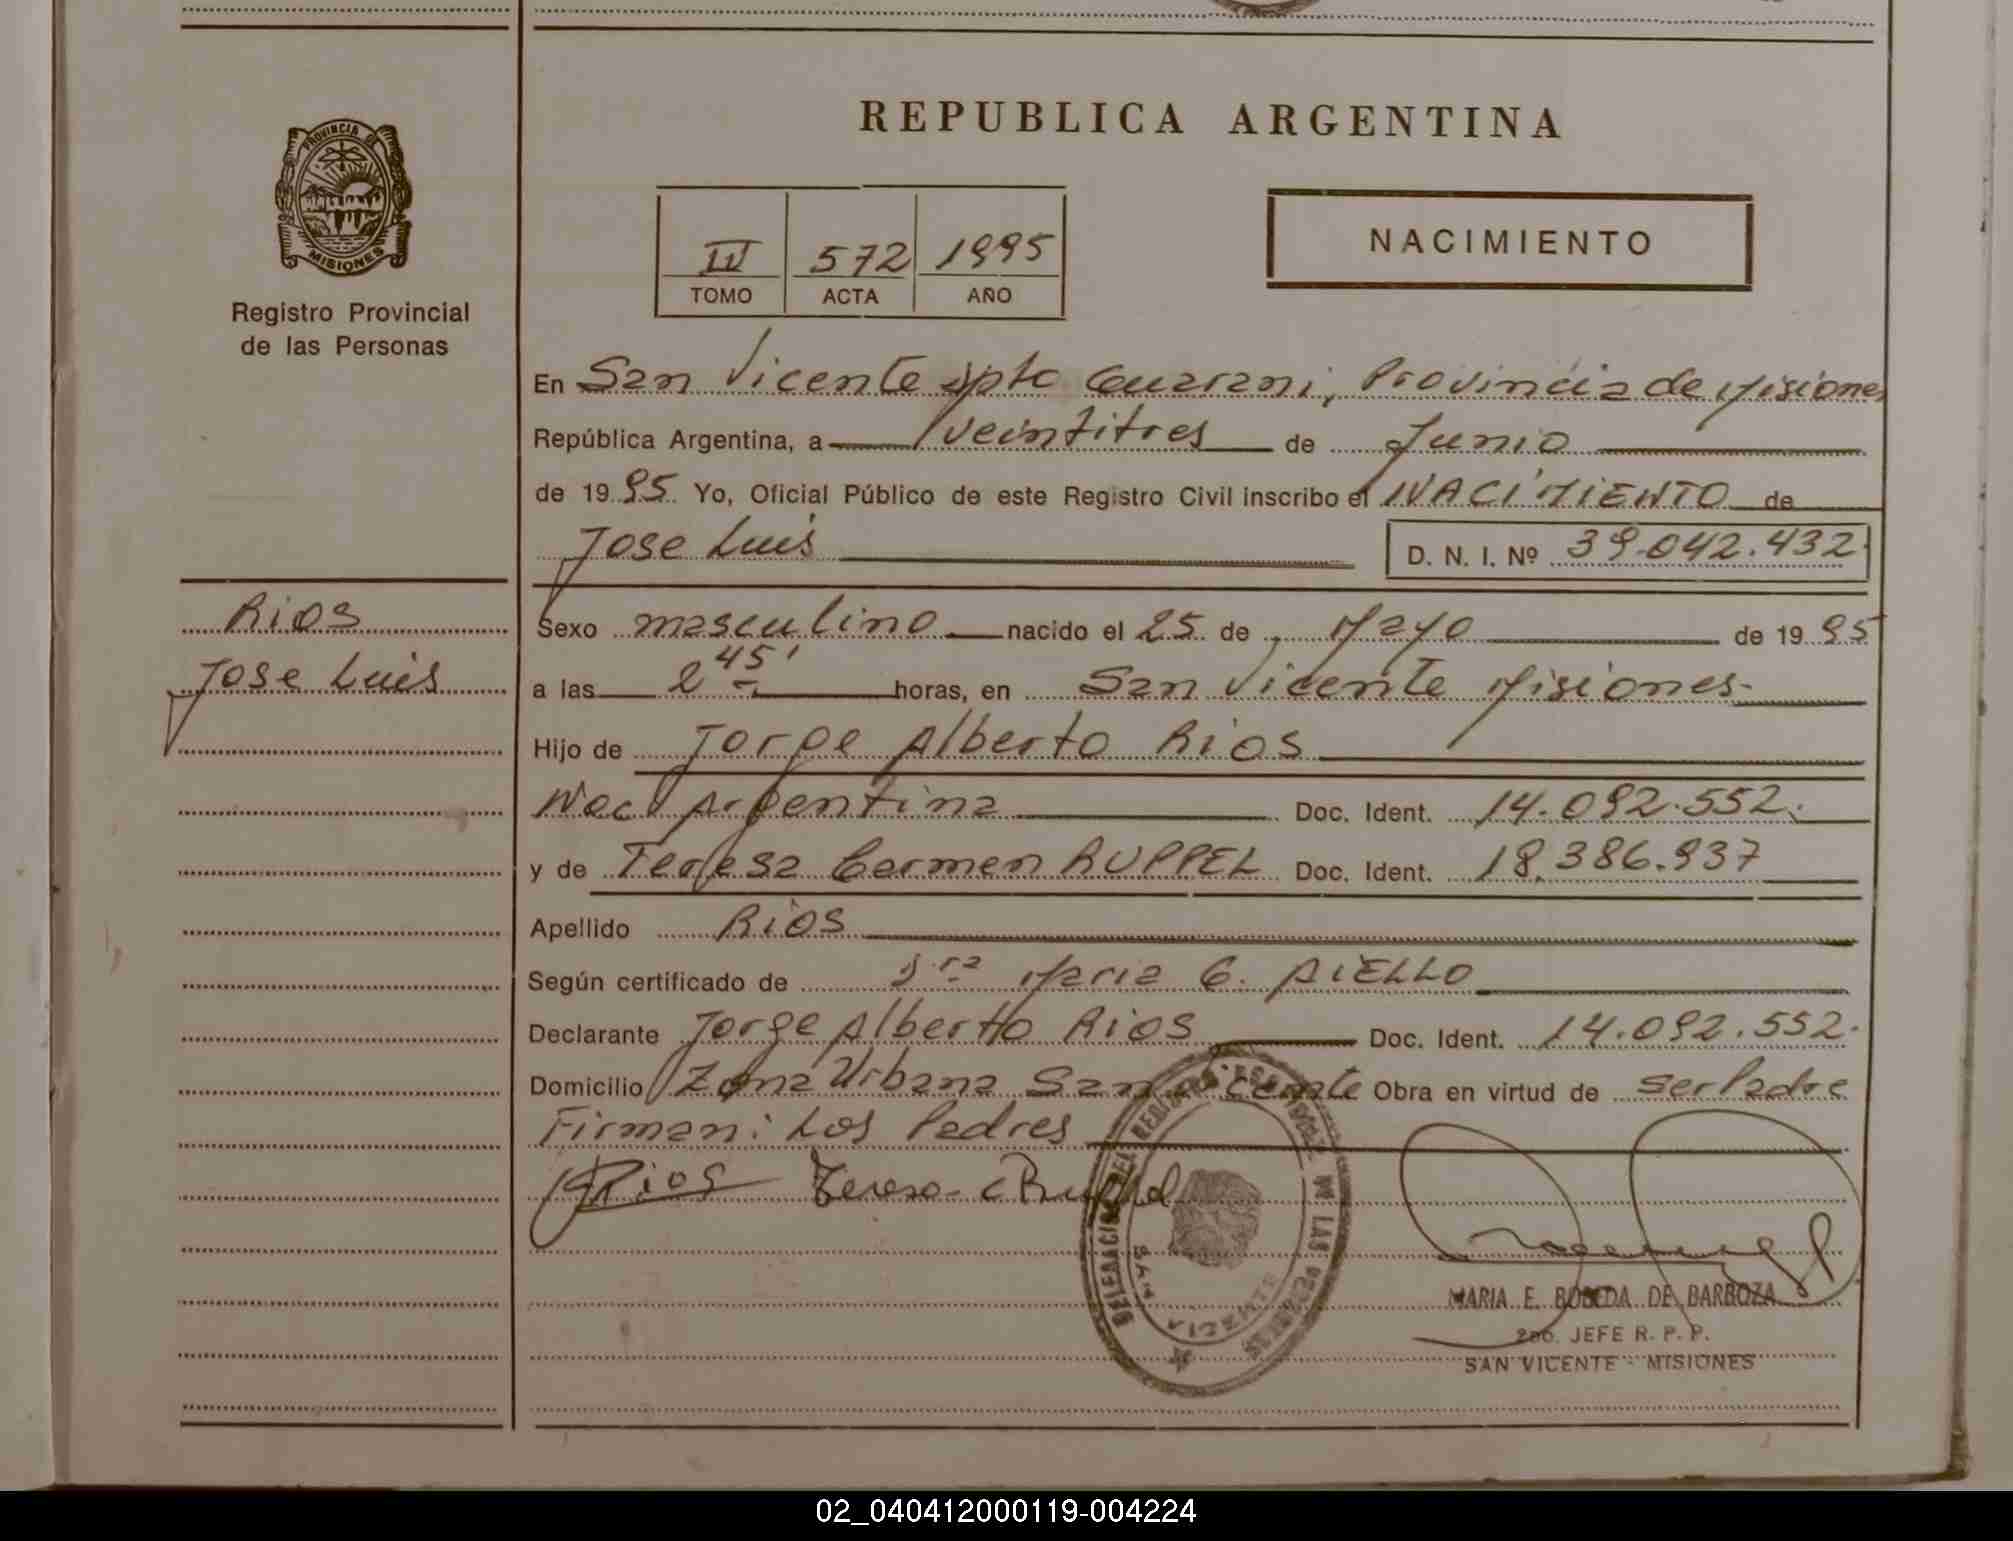 REPUBLICA ARGENTINA
PROVINCIA DE MISIONES
Registro Provincial
de las Personas
IV 572 1995
TOMO ACTA AÑO
NACIMIENTO
En San Vicente Dpto Guarani, Provincia de Misiones
República Argentina, a veintitres de Junio
de 1995 Yo, Oficial Público de este Registro Civil inscribo el NACIMIENTO de
Jose Luis D. N. I. Nº 39.042.432
Rios
Jose Luis
Sexo masculino nacido el 25 de Mayo de 1995
a las 2 45' horas, en San Vicente Misiones.
Hijo de Jorge Alberto Rios
Nac Argentina Doc. Ident. 14.092.552.
y de Teresa Carmen RUPPEL Doc. Ident. 18.386.937
Apellido Rios
Según certificado de Dra Maria G. AIELLO
Declarante Jorge Alberto Rios Doc. Ident. 14.092.552.
Domicilio Zona Urbana San Vicente Obra en virtud de ser Padre
Firman: Los Padres
Rios Teresa C Ruppel
DELEGACION DEL REGISTRO PROVINCIAL DE LAS PERSONAS
SAN VICENTE
MARIA E. BOBEDA DE BARBOZA
2do. JEFE R. P. P.
SAN VICENTE - MISIONES
02_040412000119-004224